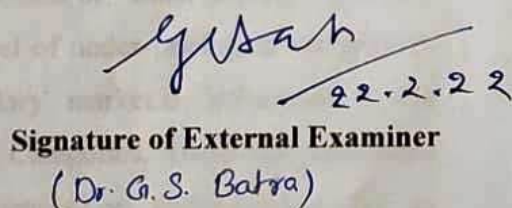 22.2.22
Signature of External Examiner
(Dr. G. S. Batra)